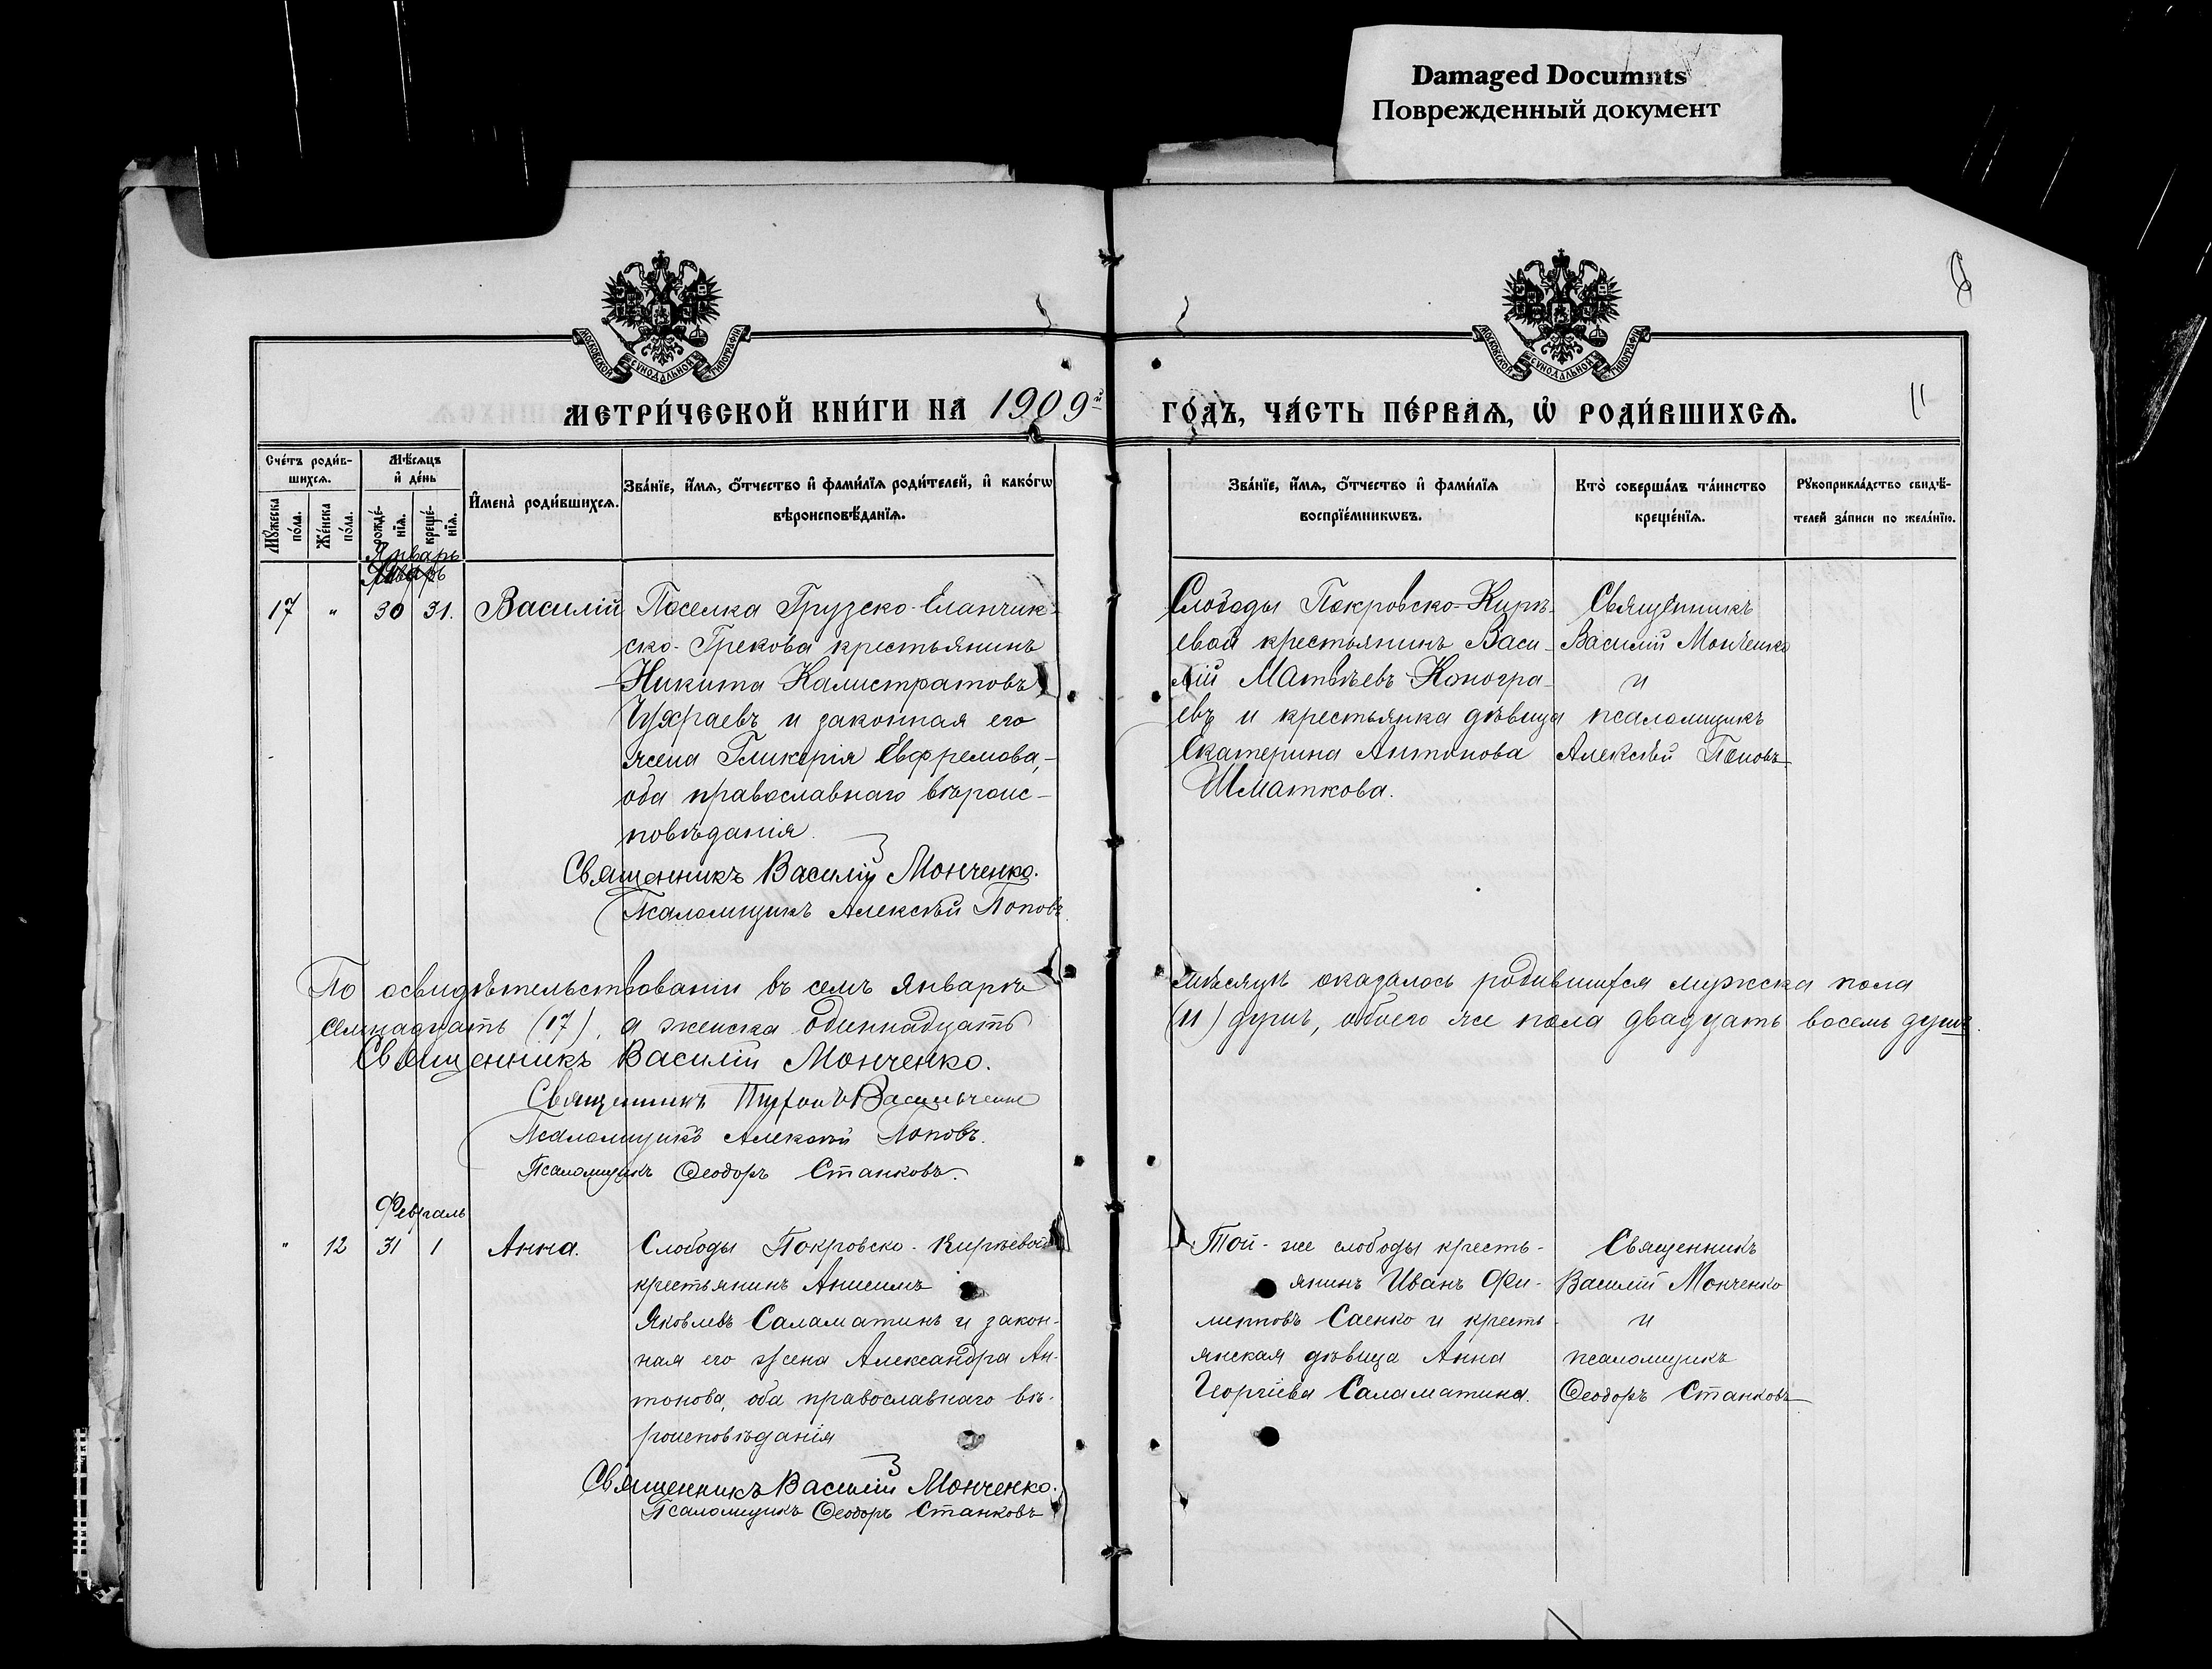 Damaged Documnts
Поврежденный документ
МОСКОВСКОЙ СѴНОДАЛЬНОЙ ТИПОГРАФІИ
МОСКОВСКОЙ СѴНОДАЛЬНОЙ ТИПОГРАФІИ
МЕТРИ́ЧЕСКОЙ КНИ́ГИ НА 1909й
ГО́ДЪ, ЧА́СТЬ ПЕ́РВАѦ, Ѡ РОДИ́ВШИХСѦ.
11
Сче́тъ роди́в-
шихсѧ.
Мꙋ́жеска по́ла.
Же́нска по́ла.
Мѣ́сѧцъ
и҆ де́нь
рожде́-
нїѧ.
креще́-
нїѧ.
И҆мена̀ роди́вшихсѧ.
Зва́нїе, и҆́мѧ, ѻ҆́тчество и҆ фами́лїѧ роди́телей, и҆ како́гѡ
вѣроисповѣ́данїѧ.
Зва́нїе, и҆́мѧ, ѻ҆́тчество и҆ фами́лїѧ
воспрїе́мникѡвъ.
Кто̀ соверша́лъ та́инство
креще́нїѧ.
Рꙋкоприкла́дство свидѣ́-
телей за́писи по жела́нїю.
Январь
17 " 30 31. Василій
Поселка Грузско-Еланчик-
ско-Грекова крестьянинъ
Никита Калистратовъ
Чухраевъ и законная его
жена Гликерія Евфремова,
оба православнаго вѣроис-
повѣданія.
Священникъ Василій Монченко.
Псаломщикъ Алексѣй Поповъ.
Слободы Покровско-Кирѣ-
евой крестьянинъ Васи-
лій Матвѣевъ Коногра-
евъ и крестьянка дѣвица
Екатерина Антонова
Шматкова.
Священникъ
Василій Монченко
и
псаломщикъ
Алексѣй Поповъ
По освидѣтельствованіи въ семъ январѣ мѣсяцѣ оказалось родившихся мужска пола
семнадцать (17), а женска одиннадцать (11) душъ, обоего же пола двадцать восемь душъ.
Священникъ Василій Монченко.
Священникъ Васильченко
Псаломщикъ Алексѣй Поповъ.
Псаломщикъ Ѳеодоръ Станковъ.
Февраль
" 12 31 1 Анна.
Слободы Покровско-Кирѣевой
крестьянинъ Анисимъ
Яковлевъ Саламатинъ и закон-
ная его жена Александра Ан-
тонова, оба православнаго вѣ-
роисповѣданія
Священникъ Василій Монченко.
Псаломщикъ Ѳеодоръ Станковъ
Той-же слободы кресть-
янинъ Иванъ Фи-
липповъ Саенко и кресть-
янская дѣвица Анна
Георгіева Саламатина.
Священникъ
Василій Монченко
и
псаломщикъ
Ѳеодоръ Станковъ